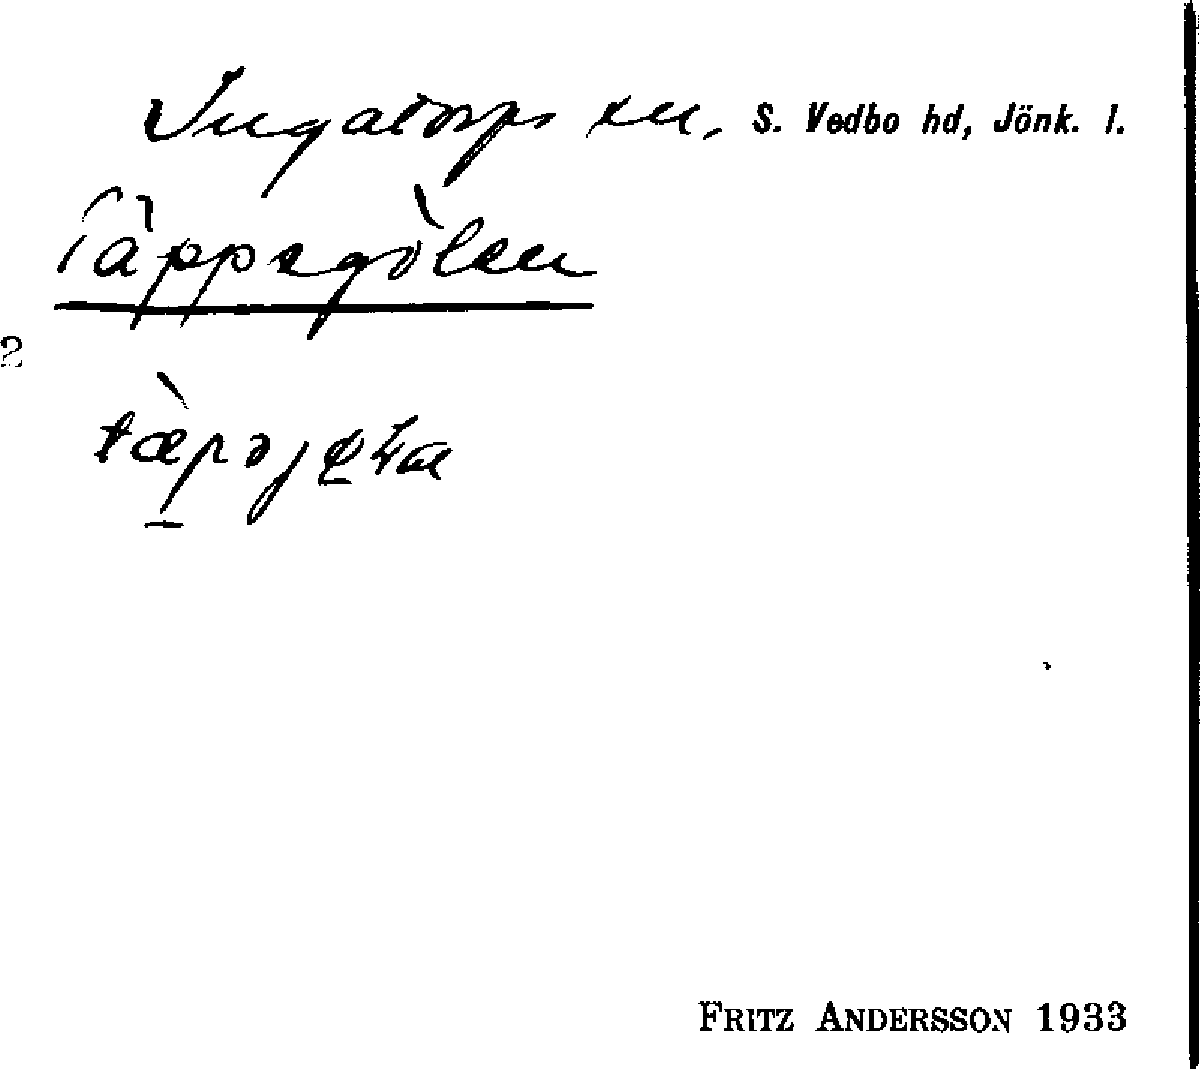 Ingatorps sn, S. Vedbo hd, Jönk. l.
Täppegölen
2
FRITZ ANDERSSON 1933